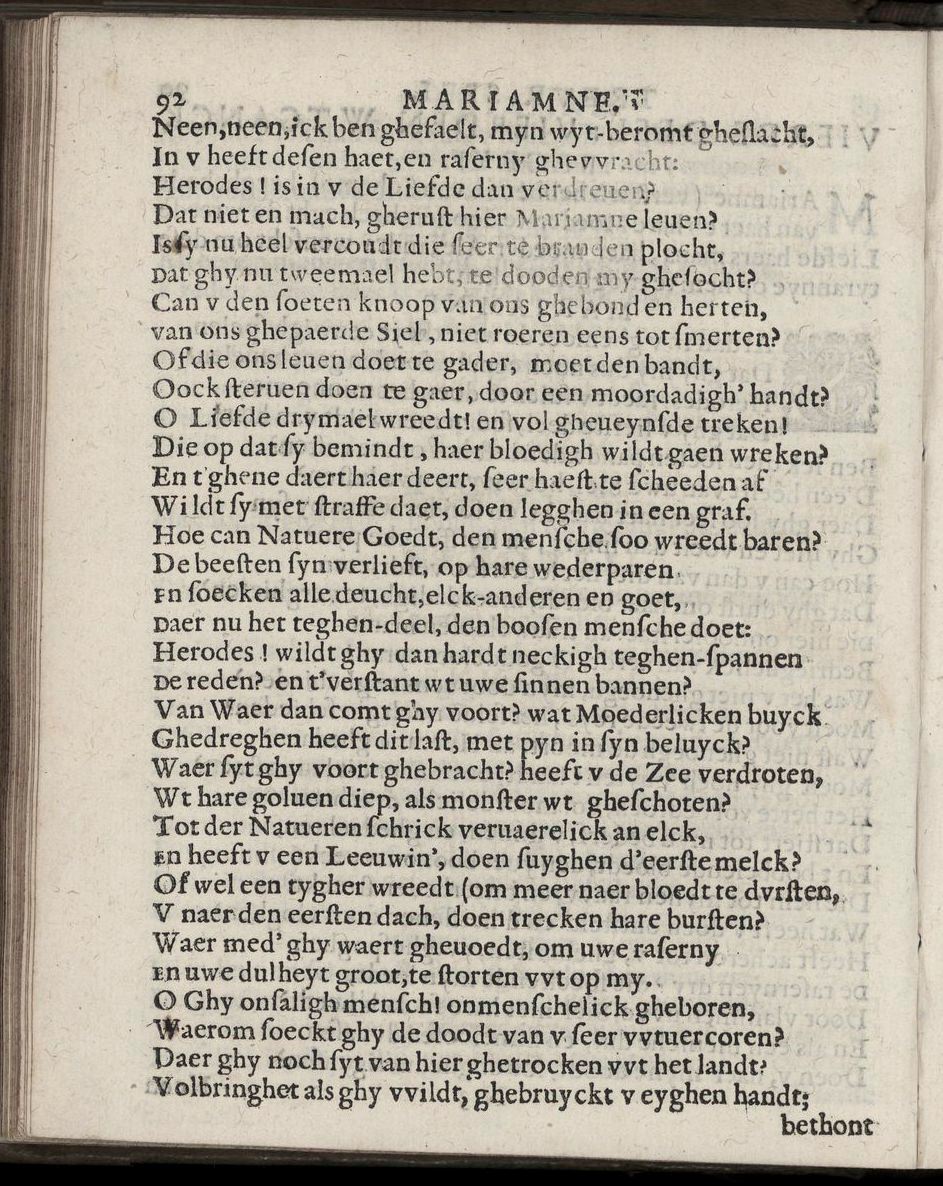 92 MARIAMNE.
Neen,neen,ick ben ghefaelt, myn wyt-beromt gheſlacht,
In v heeft deſen haet,en raſerny ghevvracht:
Herodes ! is in v de Liefde dan verdreuen?
Dat niet en mach, gheruſt hier Mariamne leuen?
Is ſy nu heel vercoudt die ſeer te branden plocht,
Dat ghy nu tweemael hebt, te dooden my gheſocht?
Can v den ſoeten knoop van ons ghebonden herten,
van ons ghepaerde Siel, niet roeren eens tot ſmerten?
Of die ons leuen doet te gader, moet den bandt,
Oock ſteruen doen te gaer, door een moordadigh' handt?
O Liefde drymael wreedt! en vol gheueynſde treken!
Die op dat ſy bemindt, haer bloedigh wildt gaen wreken?
En t'ghene daert haer deert, ſeer haeſt te ſcheeden af
Wildt ſy met ſtraffe daet, doen legghen in een graf.
Hoe can Natuere Goedt, den menſche ſoo wreedt baren?
De beeſten ſyn verlieft, op hare wederparen
En ſoecken alle deucht,elck-anderen en goet,
Daer nu het teghen-deel, den booſen menſche doet:
Herodes ! wildt ghy dan hardtneckigh teghen-ſpannen
De reden? en t'verſtant wt uwe ſinnen bannen?
Van Waer dan comt ghy voort? wat Moederlicken buyck
Ghedreghen heeft dit laſt, met pyn in ſyn beluyck?
Waer ſyt ghy voort ghebracht? heeft v de Zee verdroten,
Wt hare goluen diep, als monſter wt gheſchoten?
Tot der Natueren ſchrick veruaerelick an elck,
En heeft v een Leeuwin', doen ſuyghen d'eerſte melck?
Of wel een tygher wreedt (om meer naer bloedt te dvrſten,
V naer den eerſten dach, doen trecken hare burſten?
Waer med' ghy waert gheuoedt, om uwe raſerny
En uwe dulheyt groot,te ſtorten vvt op my.
O Ghy onſaligh menſch! onmenſchelick gheboren,
Waerom ſoeckt ghy de doodt van v ſeer vvtuercoren?
Daer ghy noch ſyt van hier ghetrocken vvt het landt?
Volbringhet als ghy vvildt, ghebruyckt v eyghen handt;
bethont